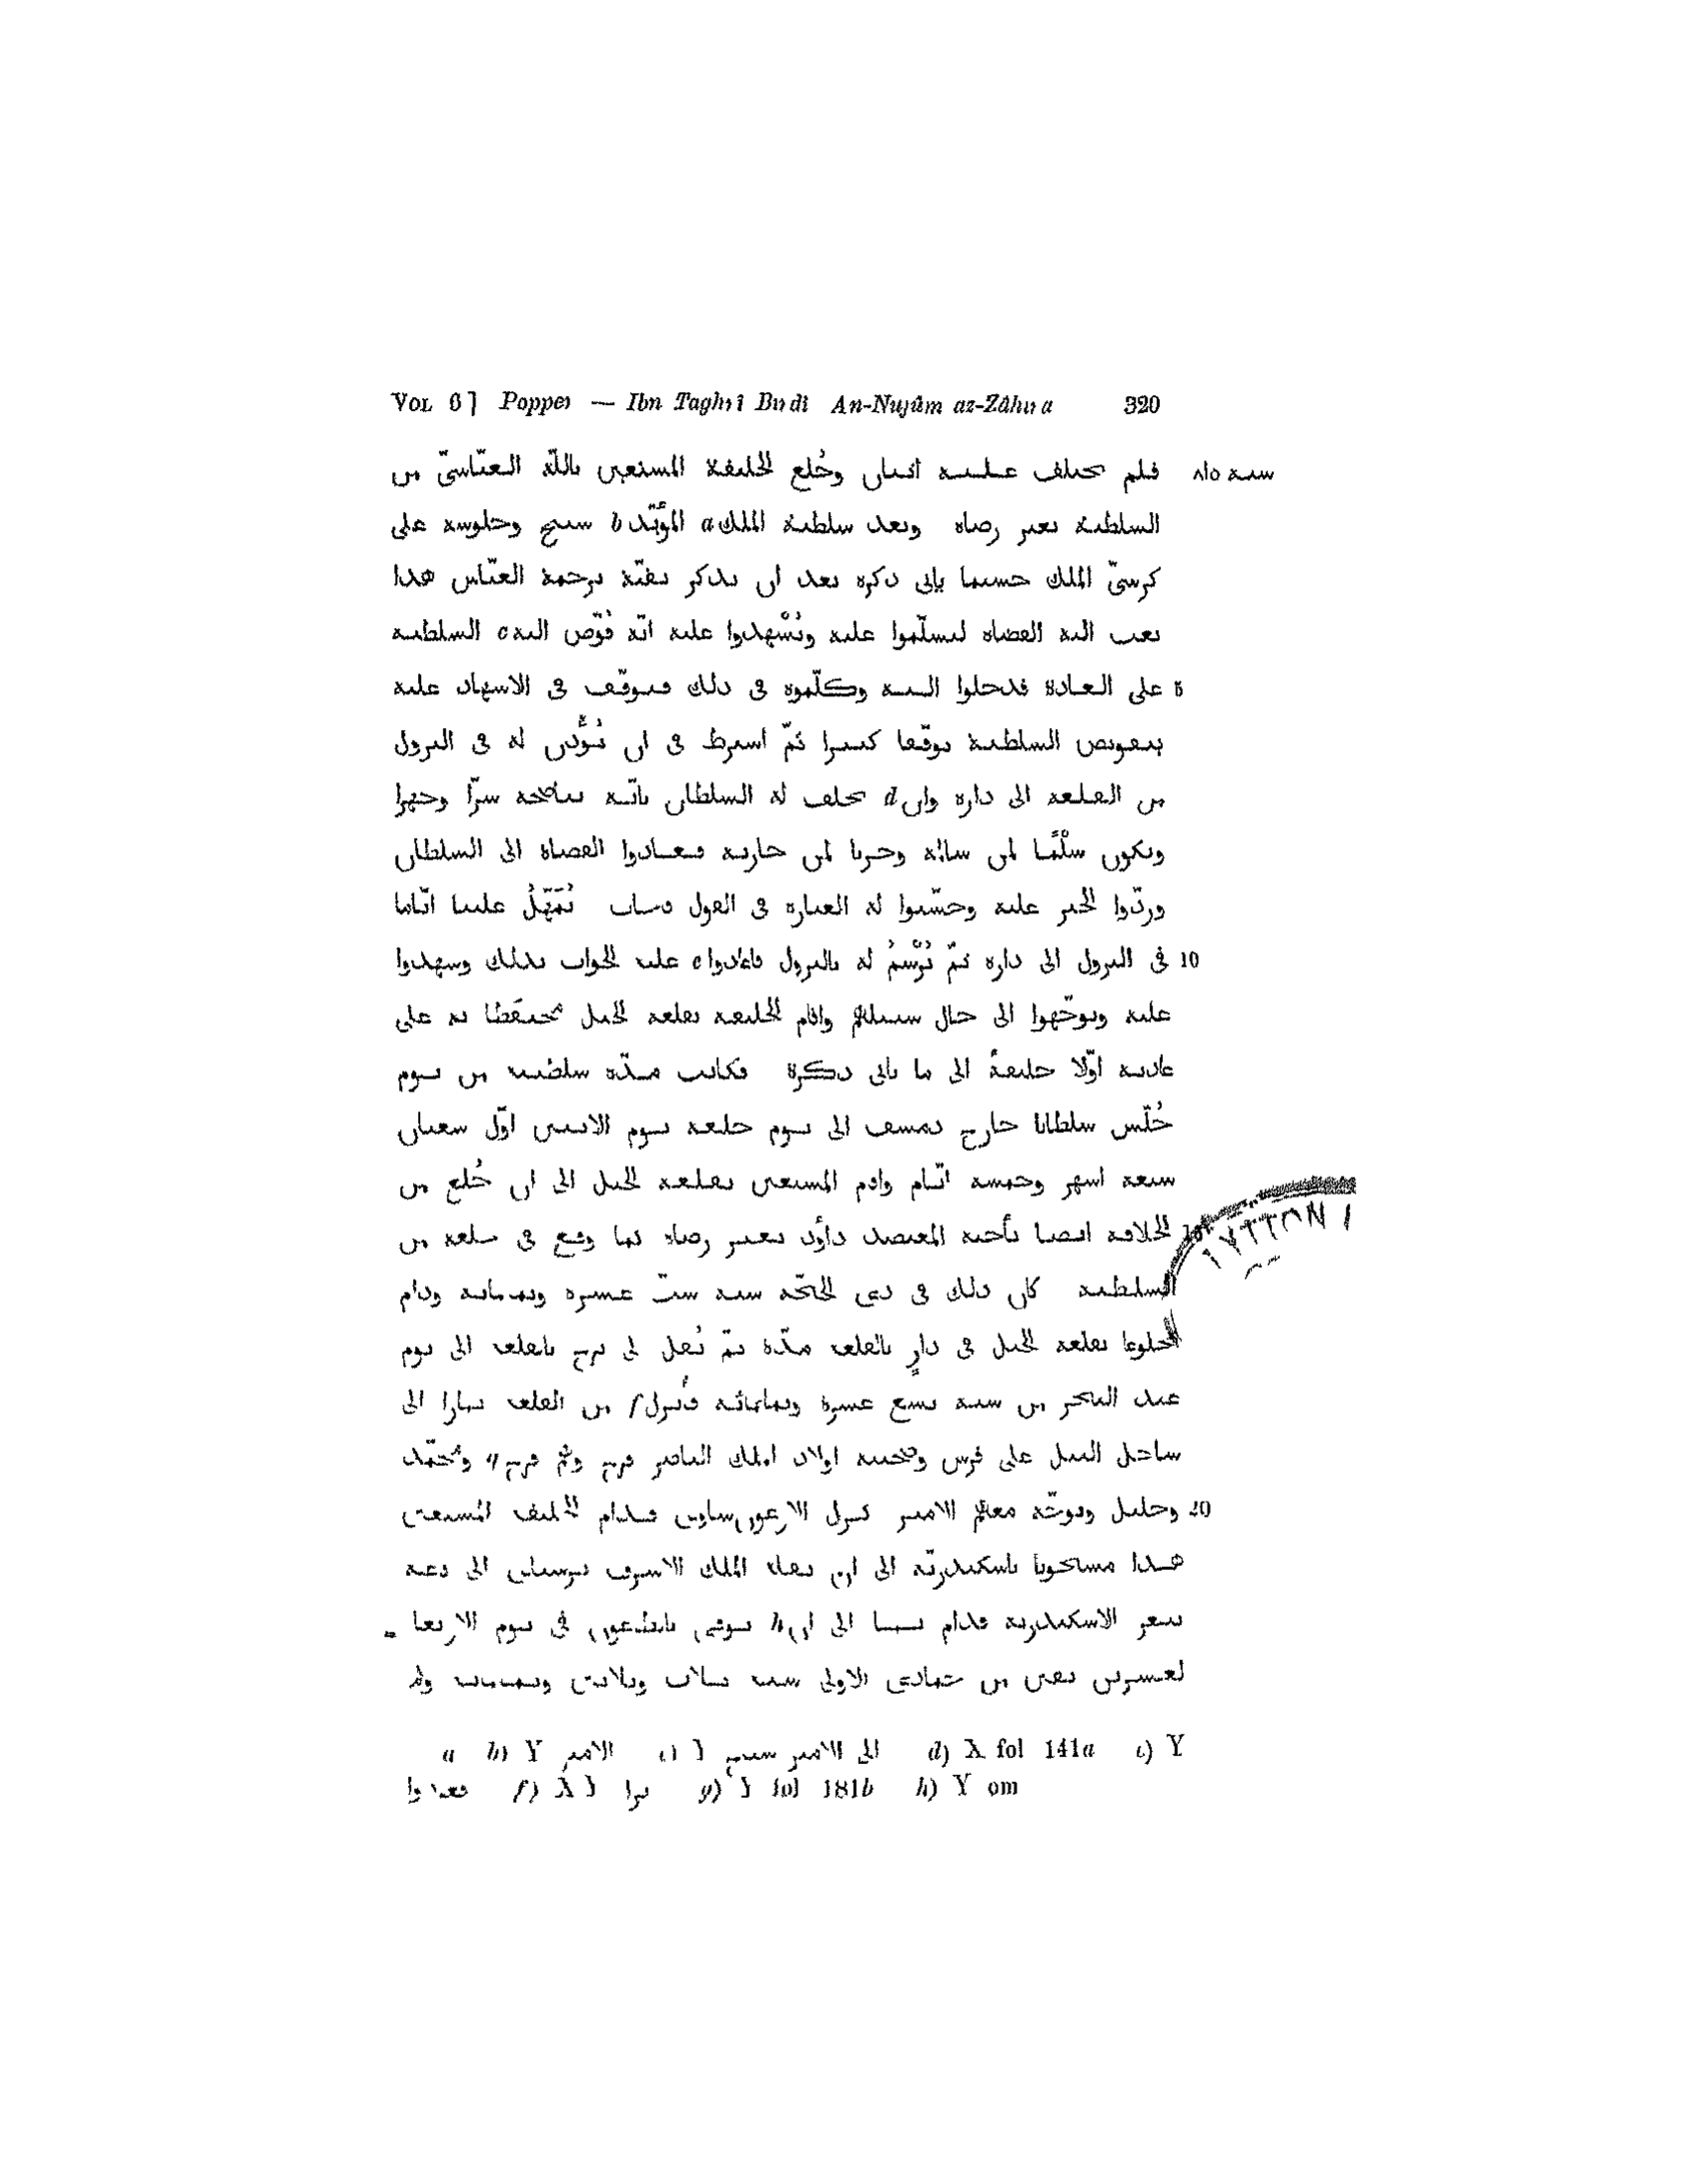 VOL 6] Popper — Ibn Taghrî Birdî An-Nujûm az-Zâhira 320
سنة ٨١٥ فلم يختلف عليه اثنان وخُلع الخليفة المستعين بالله العبّاسىّ من
السلطنة بغير رضاه وبعد سلطنة الملك a المؤيّد b شيخ وجلوسه على
كرسىّ الملك حسبما يأتى ذكره بعد ان نذكر بقيّة ترجمة العبّاس هذا
بعث اليه القضاة ليسلّموا عليه ويُشْهدوا عليه انّه فُوّض اليه c السلطنة
5 على العادة فدخلوا اليه وكلّموه فى ذلك فتوقّف فى الاشهاد عليه
بتفويض السلطنة توقّفا كبيرا ثمّ اشترط فى ان يُؤْذن له فى النزول
من القلعة الى داره وان d يحلف له السلطان بانّه يناصحه سرّا وجهرا
ويكون سلْمًا لمن سالمه وحربا لمن حاربه فعادوا القضاة الى السلطان
وردّوا الخبر عليه وحسّنوا له العبارة فى القول فاجاب يُمَهِّلُ علينا ايّاما
10 فى النزول الى داره ثمّ يُرْسَمُ له بالنزول فاعادوا e عليه الجواب بذلك وشهدوا
عليه وتوجّهوا الى حال سبيلهم واقام الخليفة بقلعة الجبل محتفَظا به على
عادته اوّلا خليفةً الى ما يأتى ذكره فكانت مدّة سلطنته من يوم
جُلّس سلطانا خارج دمشق الى يوم خلعه يوم الاثنين اوّل شعبان
سبعة اشهر وخمسة ايّام واقام المستعين بقلعة الجبل الى ان خُلع من
الخلافة ايضا بأخيه المعتضد داؤد بغير رضاه كما وقع فى خلعه من
السلطنة كان ذلك فى ذى الحجّة سنة ستّ عشرة وثمانمائة ودام
مخلوعا بقلعة الجبل فى دارٍ بالقلعة مدّة ثمّ نُقل الى برج بالقلعة الى يوم
عيد النحر من سنة تسع عشرة وثمانمائة فأُنزل f من القلعة نهارا الى
ساحل النيل على فرس وصحبته اولاد الملك الناصر فرج وهم فرج g ومحمّد
20 وخليل وتوجّه معهم الامير كزل الارغون شاوى فدام الخليفة المستعين
هذا مسجونا باسكندريّة الى ان نقله الملك الاشرف برسباى الى قاعة
بثغر الاسكندرية فدام بها الى ان h توفّى بالطاعون فى يوم الاربعا
لعشرين بقين من جمادى الاولى سنة ثلاث وثلاثين وثمانمائة ولم
a b) Y الامير c) Y الى الامير شيخ d) X fol 141a e) Y
فعادوا f) X Y g) Y fol 181b h) Y om